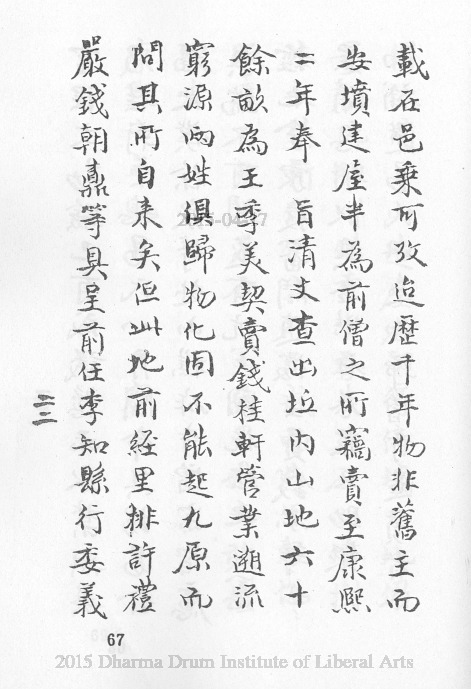 載在邑乘可攷迨歷千年物非舊主而
安墳建屋半為前僧之所竊賣至康熙
二年奉　旨清丈查出坵內山地六十
餘畝為王季美契賣錢桂軒管業遡流
窮源兩姓俱歸物化固不能起九原而
問其所自来矣但此地前經里排許禮
嚴錢朝鼎等具呈前任李知縣行委義
二三
67
2015 Dharma Drum Institute of Liberal Arts